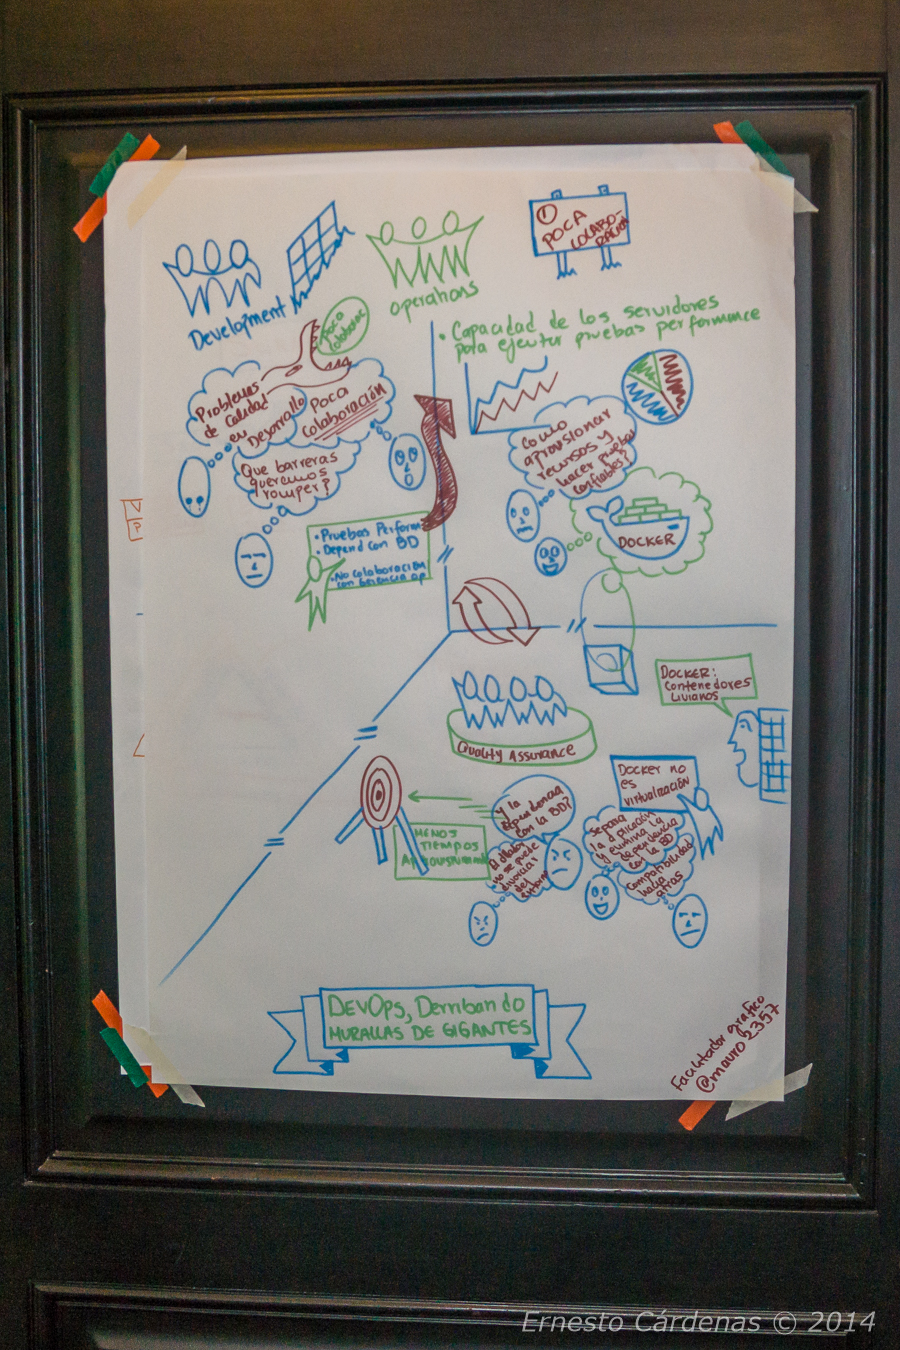 Development
operations
① POCA
COLABO-
RACIÓN
Poca
Colaborac
• Capacidad de los servidores
para ejecutar pruebas performance
Problemas
de calidad
en
Desarrollo
POCA
Colaboración
Que barreras
queremos
romper?
• Pruebas Perform
• Depend con BD
• No colaboración
con Gerencia op
Como
aprovisionar
recursos y
hacer pruebas
confiables?
DOCKER
V
P
Quality Assurance
DOCKER:
Contenedores
Livianos
Docker no
es
virtualización
MENOS
TIEMPOS
y la
dependencia
con la BD?
no se puede
divorciar
del
Separa
la aplicación
y elimina la
dependencia
con la BD
Compatibilidad
hacia
atras
DevOps, Derribando
MURALLAS DE GIGANTES
Facilitador gráfico
@mauro2357
Ernesto Cárdenas © 2014